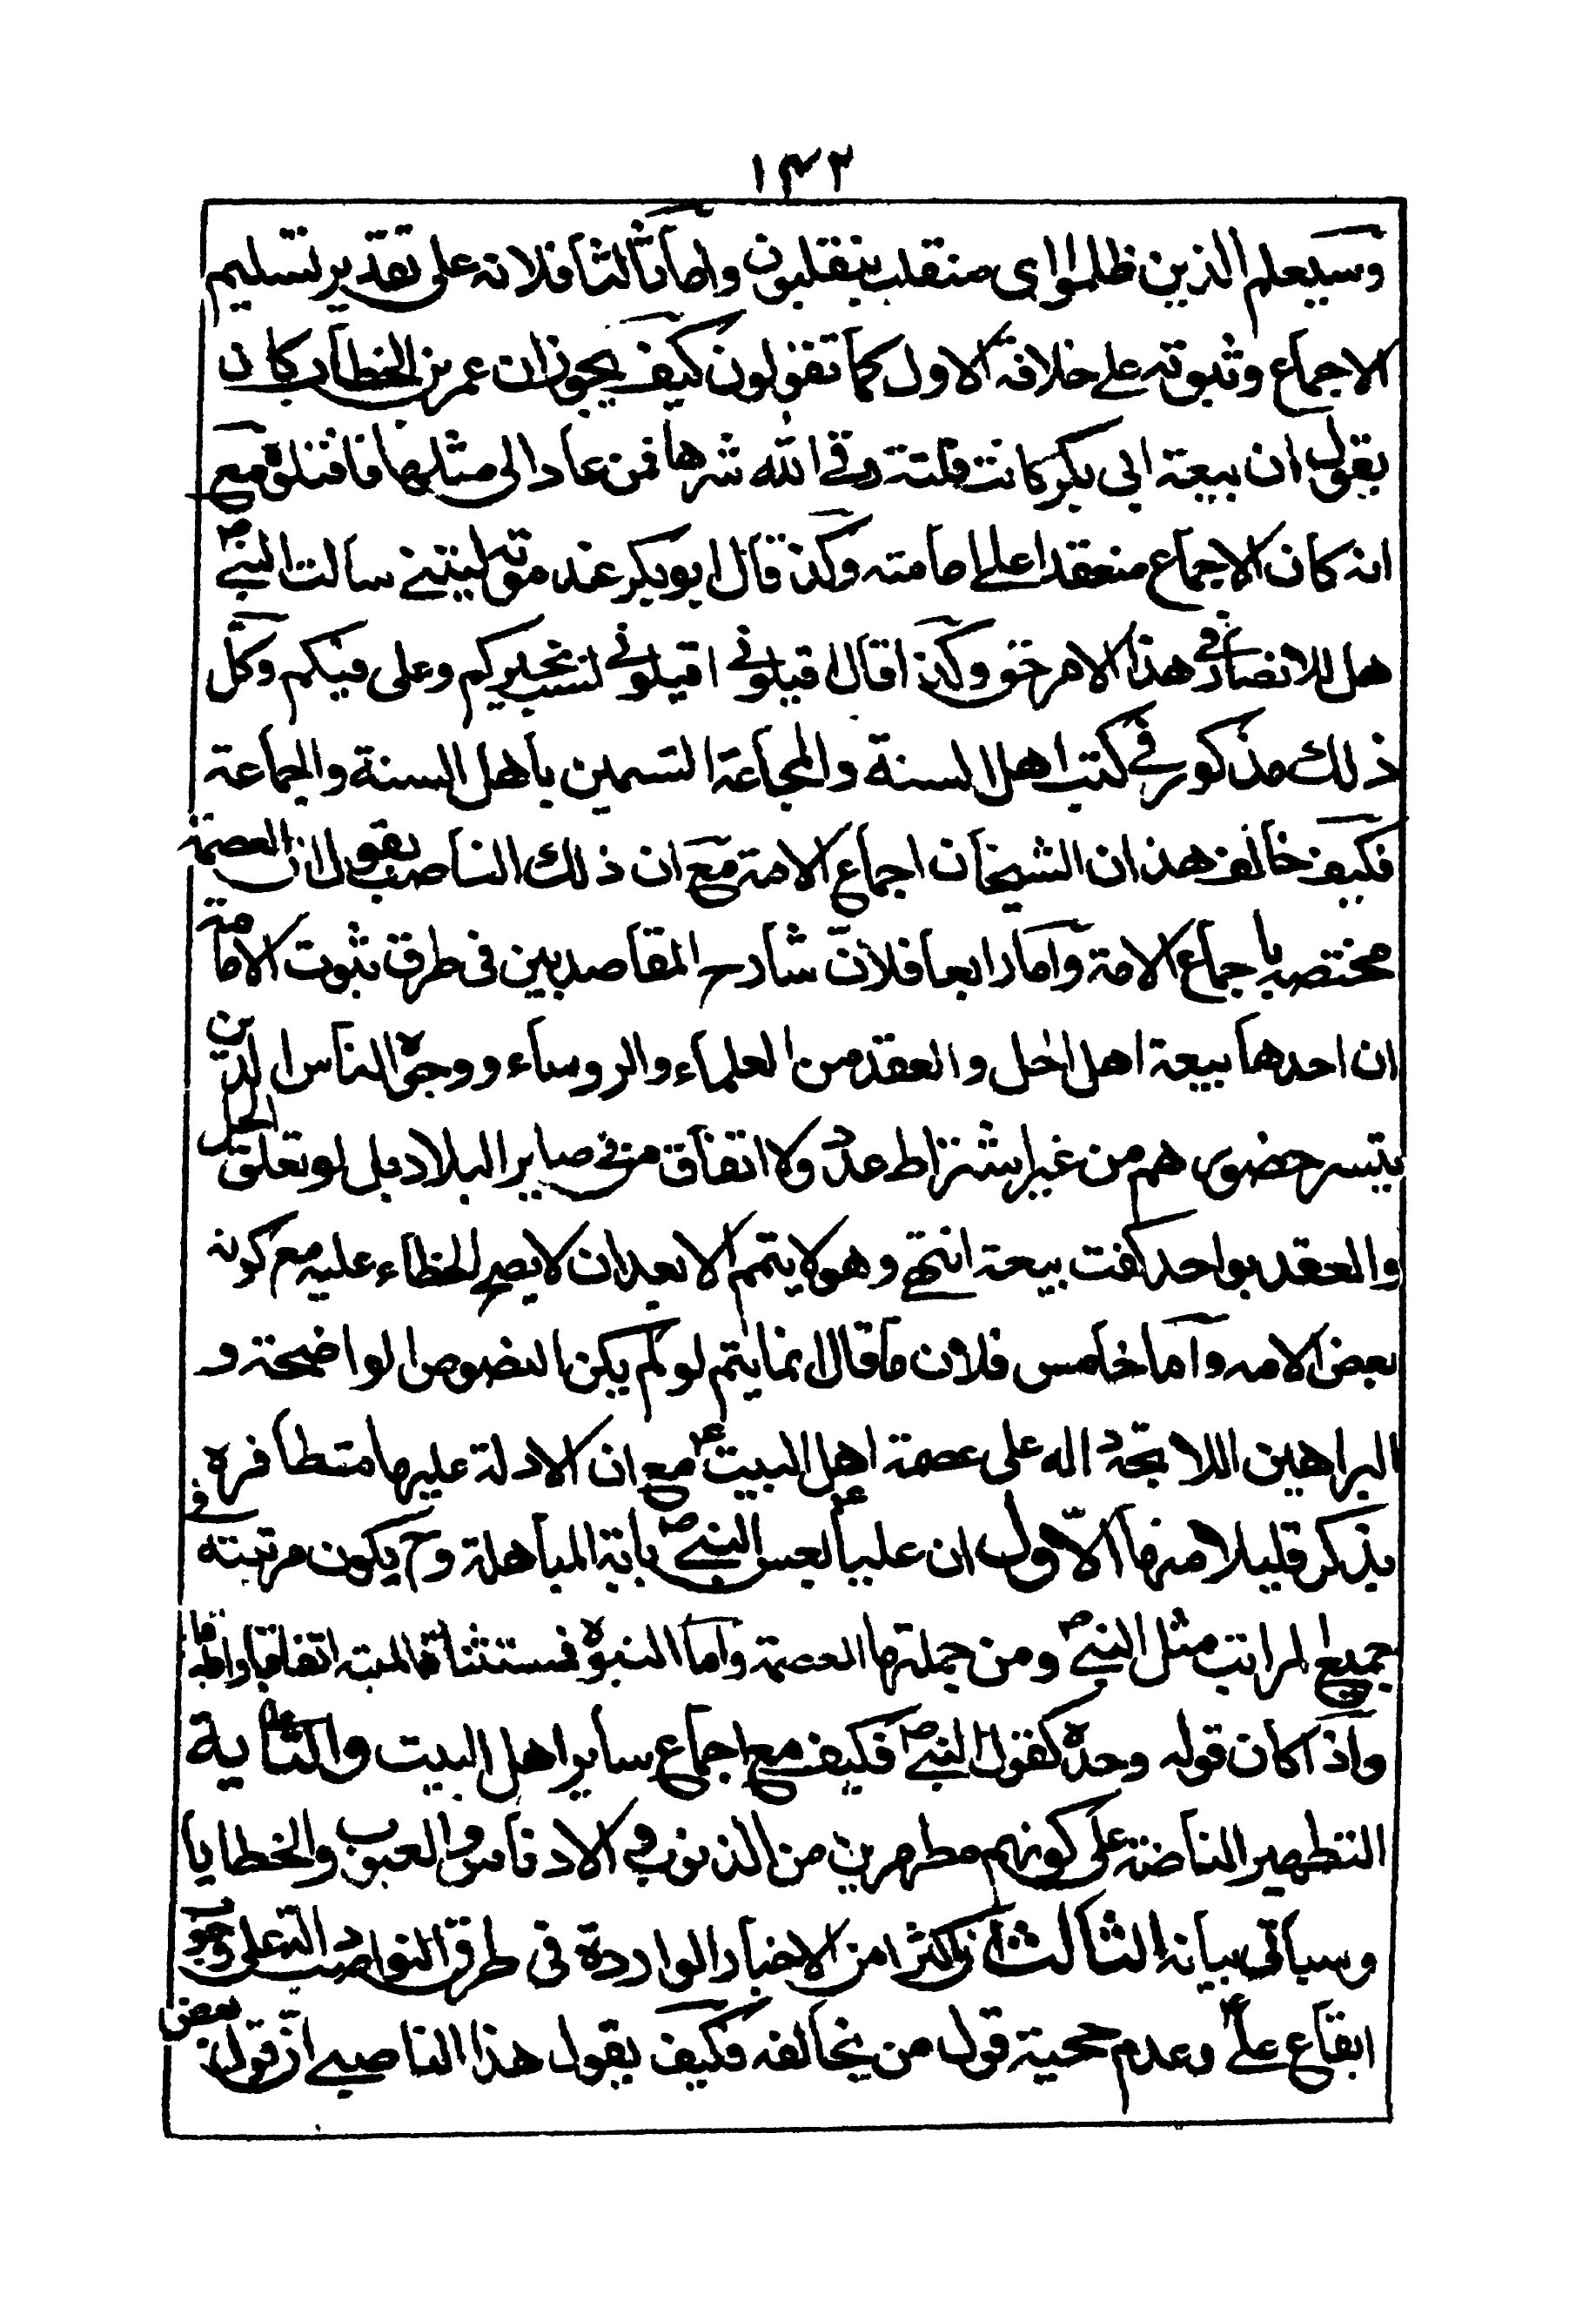 ١٤٢
وسيعلم الذين ظلموا اى منقلب ينقلبون واما ثالثا فلانه على تقدير تسليم
الاجماع وثبوته على خلافة الاول كما تقولون كيف يجوز ان عمر بن الخطاب كان
يقول ان بيعة ابى بكر كانت فلتة وقى الله شرها فمن عاد الى مثلها فاقتلوه مع
انه كان الاجماع منعقدا على امامته وكذ قال ابو بكر عند موته ليتنى سالت النبى ص
هل للانصار فى هذا الامر حق وكذا قال اقيلونى اقيلونى لست بخيركم وعلى فيكم وكل
ذلك مذكور فى كتب اهل السنة والمجاعة التسمين باهل السنة والجماعة
فكيف خالف هذان الشيخان اجماع الامة مع ان ذلك الناصب يقول ان العصمة
مختصه باجماع الامة واما رابعا فلان شارح المقاصد بين فى طرق ثبوت الامامة
ان احدها بيعة اهل الحل والعقد من العلماء والروساء ووجوه الناس الذين
يتسر حضورهم من غير اشتراط عدد ولا اتفاق من فى ساير البلاد بل لو تعلق الحل
والعقد بواحد كفت بيعة انتهى وهو لا يتمم الا بعد ان لا يصح الخطاء عليه مع كونه
بعض الامه واما خامس فلان ما قال انما يتم لو لم يكن النصوص الواضحة و
البراهين اللا على عصمة اهل البيت ع مع ان الادلة عليها متظافره
يذكر قليلا منها الاول ان عليا ع النبى ص باية المباهلة وح يكون مرتبته فى
جميع المراتب مثل النبى ص ومن جملتها العصمة واما النبوة فمستثناة البتة اتفاقا
واذا كان قوله وحده كقول النبى ص فكيف مع اجماع ساير اهل البيت ع والثا ية
التطهير الناصة على كونهم مطهرين من الذنوب و الادناس والعيوب والخطايا
وسياتى بيانه الثالث ان كثرا من الاخبار الواردة فى طرق النواصب على وجوب
اتباع على ع وعدم حجية قول من يخالفه فكيف يقول هذا الناصبى ان قول بعض